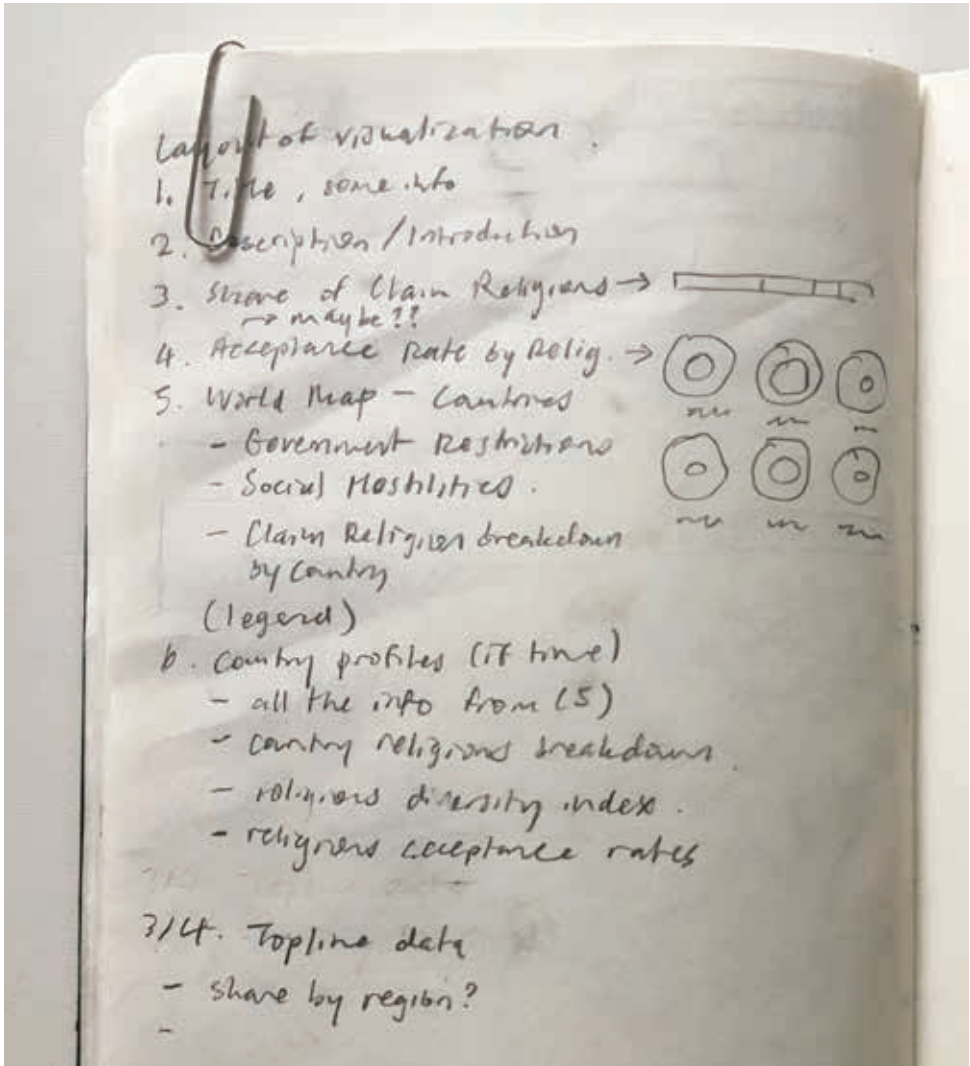 Layout of visualization.
1. Title, some info
2. Description/Introduction
3. Share of Claim Religions →
→ maybe??
4. Acceptance Rate by Relig. →
5. World Map - Countries
- Government Restrictions
- Social Hostilities.
- Claim Religion breakdown
by Country
(legend)
6. Country profiles (if time)
- all the info from (5)
- country religions breakdown.
- religious diversity index.
- religious acceptance rates
3/4. Topline data
- share by region?
-